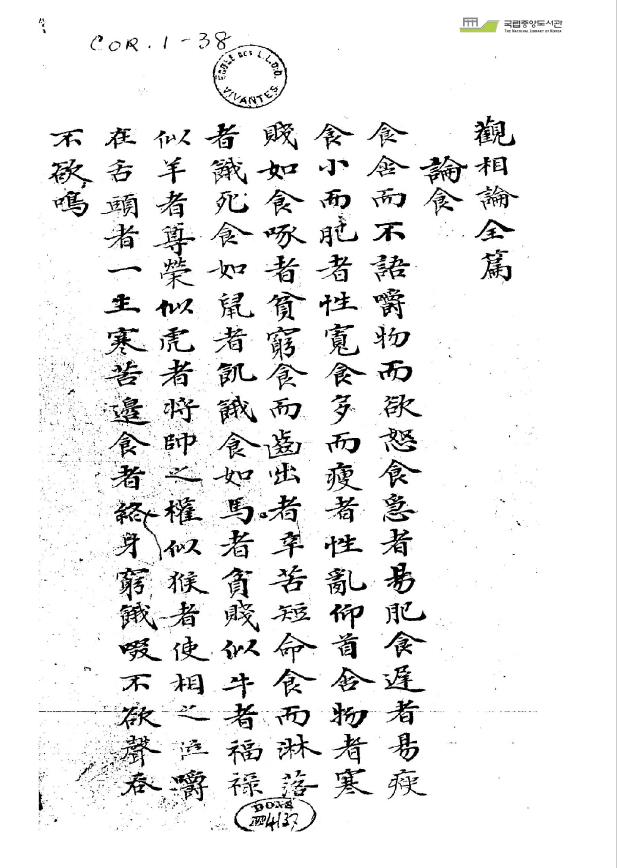 국립중앙도서관
THE NATIONAL LIBRARY OF KOREA
COR. 1-38
ECOLE DES L.L.O.O. VIVANTES
觀相論全篇
論食
食含而不語嚼物而欲怒食急者易肥食遲者易瘦
食小而肥者性寬食多而瘦者性亂仰首含物者寒
賤如食啄者貧窮食而齒出者辛苦短命食而淋落
者餓死食如鼠者飢餓食如馬者貧賤似牛者福祿
似羊者尊榮似虎者將帥之權似猴者使相之位嚼
在舌頭者一生寒苦邉食者終身窮餓啜不欲聲吞
不欲鳴
DONS